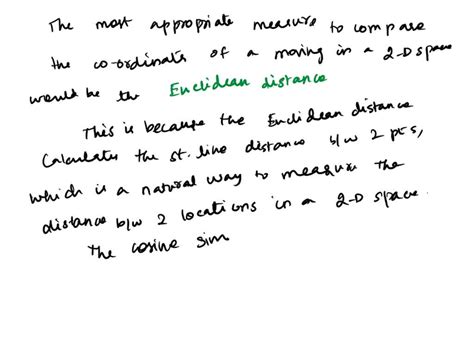 The most appropriate measure to compare
the co-ordinates of a moving in a 2-D space
would be the Euclidean distance
This is because the Euclidean distance
Calculates the st. line distance b/w 2 pts,
which is a natural way to measure the
distance b/w 2 locations in a 2-D space.
The cosine sim